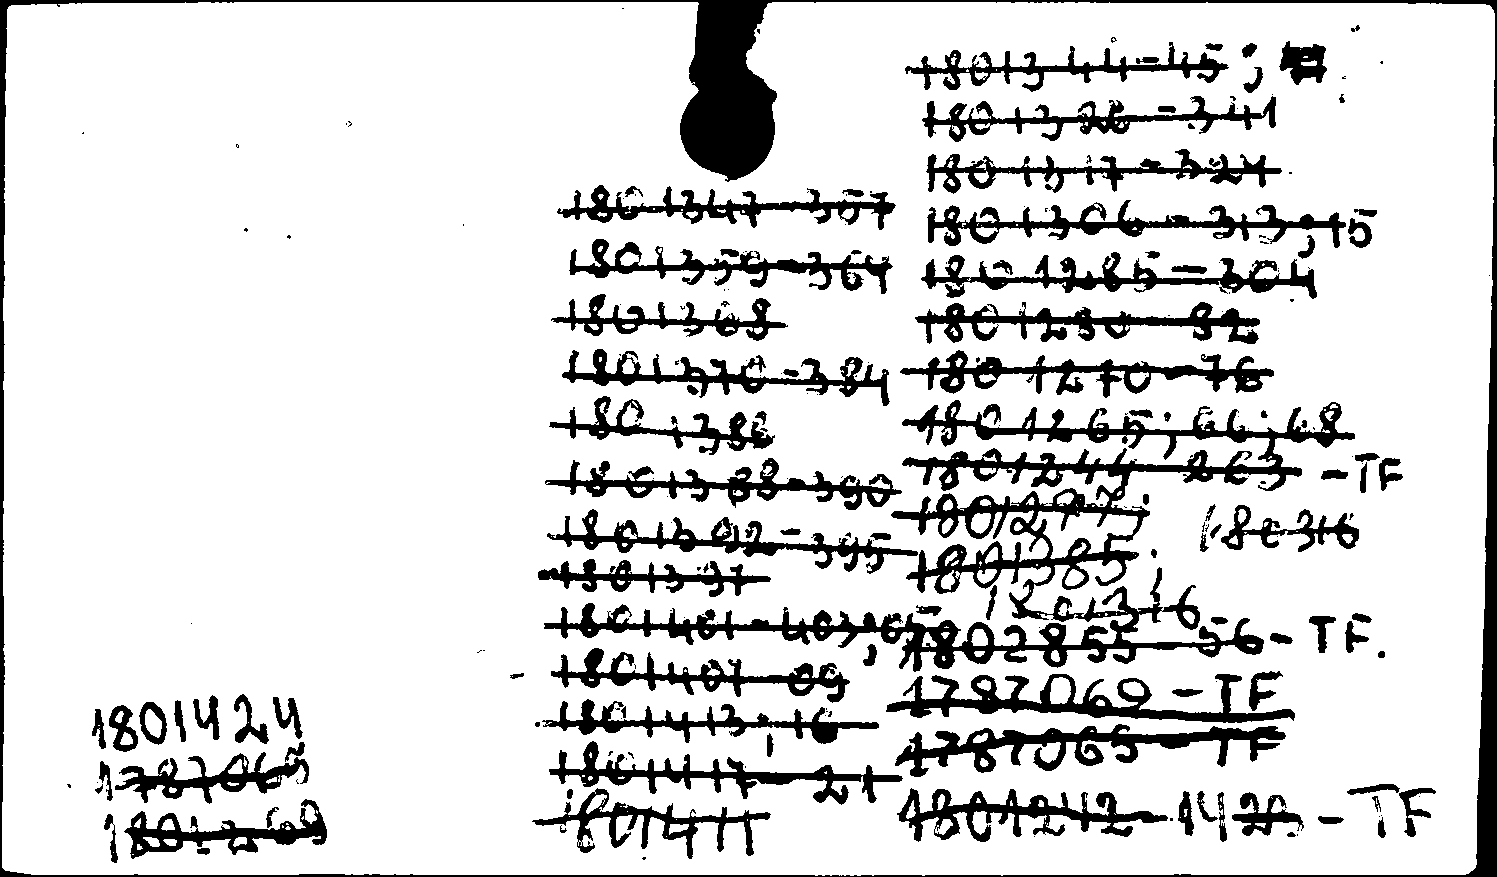 1801347-357
1801359-364
1801368
1801370-384
1801386
1801388-390
1801392-395
1801397
1801401-403;05
1801407-09
1801413;16
1801417-21
1801411
1801344-45;
1801326-341
1801317-324
1801306-313;15
1801285-304
1801280-82
1801270-76
1801265;66;68
1801244-263 -TF
1801277;
180316
1801385;
1801316
1802855-56-TF.
1787069-TF
1787065-TF
1801242-1423-TF
1801424
1787065
1801269